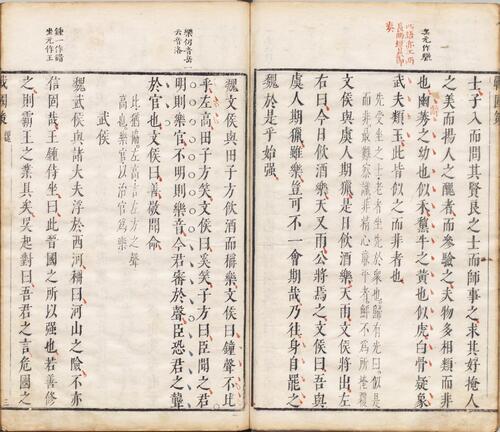 士子入而問其賢良之士而師事之求其好掩人
之美而揚人之醜者而參驗之夫物多相類而非
也幽莠之幼也似禾黧牛之黃也似虎白骨疑象
武夫類玉此皆似之而非者也
文侯與虞人期獵是日飲酒樂天雨文侯將出左
右曰今日飲酒樂天又雨公將焉之文侯曰吾與
虞人期獵雖樂豈可不一會期哉乃往身自罷之
魏於是乎始强
樂何音岳一
云音洛
魏文侯與田子方飲酒而稱樂文侯曰鐘聲不比
乎左高田子方笑文侯曰奚笑子方曰臣聞之君
明則樂官不明則樂音今君審於聲臣恐君之聾
於官也文侯曰善敬聞命
此猶偏也左高言左方之聲
高也樂官以治官為樂
武侯
鍾一作錯
坐元作王
魏武侯與諸大夫浮於西河稱曰河山之險不亦
信固哉王鍾侍坐曰此晉國之所以强也若善修
之則霸王之業具矣吳起對曰吾君之言危國之